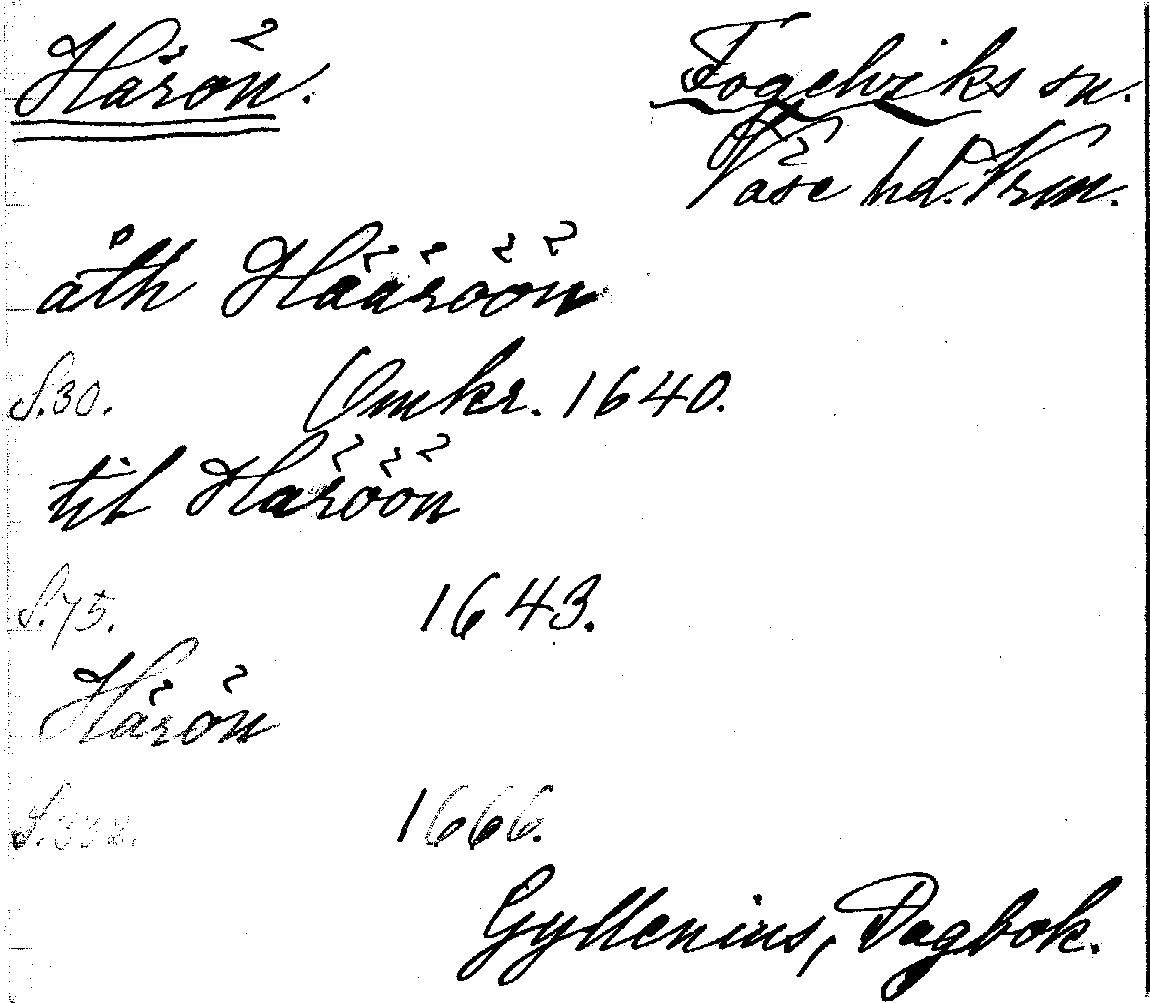 Härön. Fogelviks sn.
Väse hd. Vrm.
åth Hääröön
S.30. Omkr. 1640.
til Häröön
S.75. 1643.
Härön
1666.
Gyllenius, Dagbok.